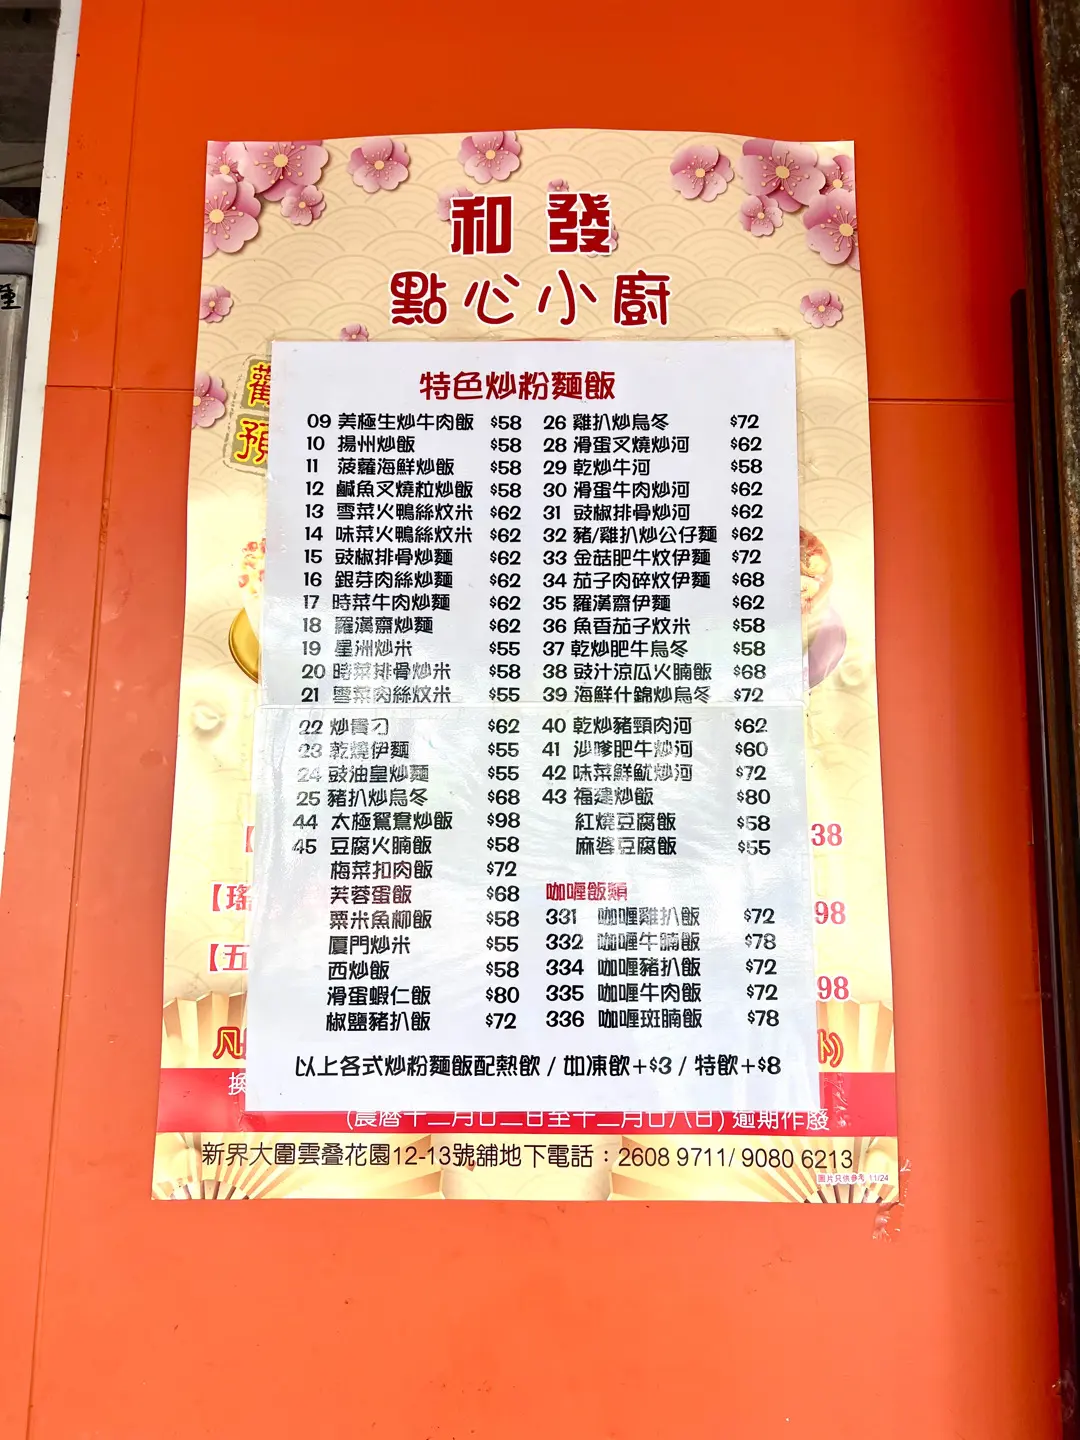 和發
點心小廚
特色炒粉麵飯
09 美極生炒牛肉飯 $58
10 揚州炒飯 $58
11 菠蘿海鮮炒飯 $58
12 鹹魚叉燒粒炒飯 $58
13 雪菜火鴨絲炆米 $62
14 味菜火鴨絲炆米 $62
15 豉椒排骨炒麵 $62
16 銀芽肉絲炒麵 $62
17 時菜牛肉炒麵 $62
18 羅漢齋炒麵 $62
19 星洲炒米 $55
20 時菜排骨炒米 $58
21 雪菜肉絲炆米 $55
22 炒貴刁 $62
23 乾燒伊麵 $55
24 豉油皇炒麵 $55
25 豬扒炒烏冬 $68
44 太極鴛鴦炒飯 $98
45 豆腐火腩飯 $58
梅菜扣肉飯 $72
芙蓉蛋飯 $68
粟米魚柳飯 $58
廈門炒米 $55
西炒飯 $58
滑蛋蝦仁飯 $80
椒鹽豬扒飯 $72
26 雞扒炒烏冬 $72
28 滑蛋叉燒炒河 $62
29 乾炒牛河 $58
30 滑蛋牛肉炒河 $62
31 豉椒排骨炒河 $62
32 豬/雞扒炒公仔麵 $62
33 金菇肥牛炆伊麵 $72
34 茄子肉碎炆伊麵 $68
35 羅漢齋伊麵 $62
36 魚香茄子炆米 $58
37 乾炒肥牛烏冬 $58
38 豉汁涼瓜火腩飯 $68
39 海鮮什錦炒烏冬 $72
40 乾炒豬頸肉河 $62
41 沙嗲肥牛炒河 $60
42 味菜鮮魷炒河 $72
43 福建炒飯 $80
紅燒豆腐飯 $58
麻婆豆腐飯 $55
咖喱飯類
331 咖喱雞扒飯 $72
332 咖喱牛腩飯 $78
334 咖喱豬扒飯 $72
335 咖喱牛肉飯 $72
336 咖喱斑腩飯 $78
以上各式炒粉麵飯配熱飲 / 如凍飲+$3 / 特飲+$8
預
38
【瑤
98
【五
98
凡
外)
換
(農曆十二月廿二日至十二月廿八日) 逾期作廢
新界大圍雲疊花園12-13號舖地下電話：2608 9711/ 9080 6213
圖片只供參考 11/24